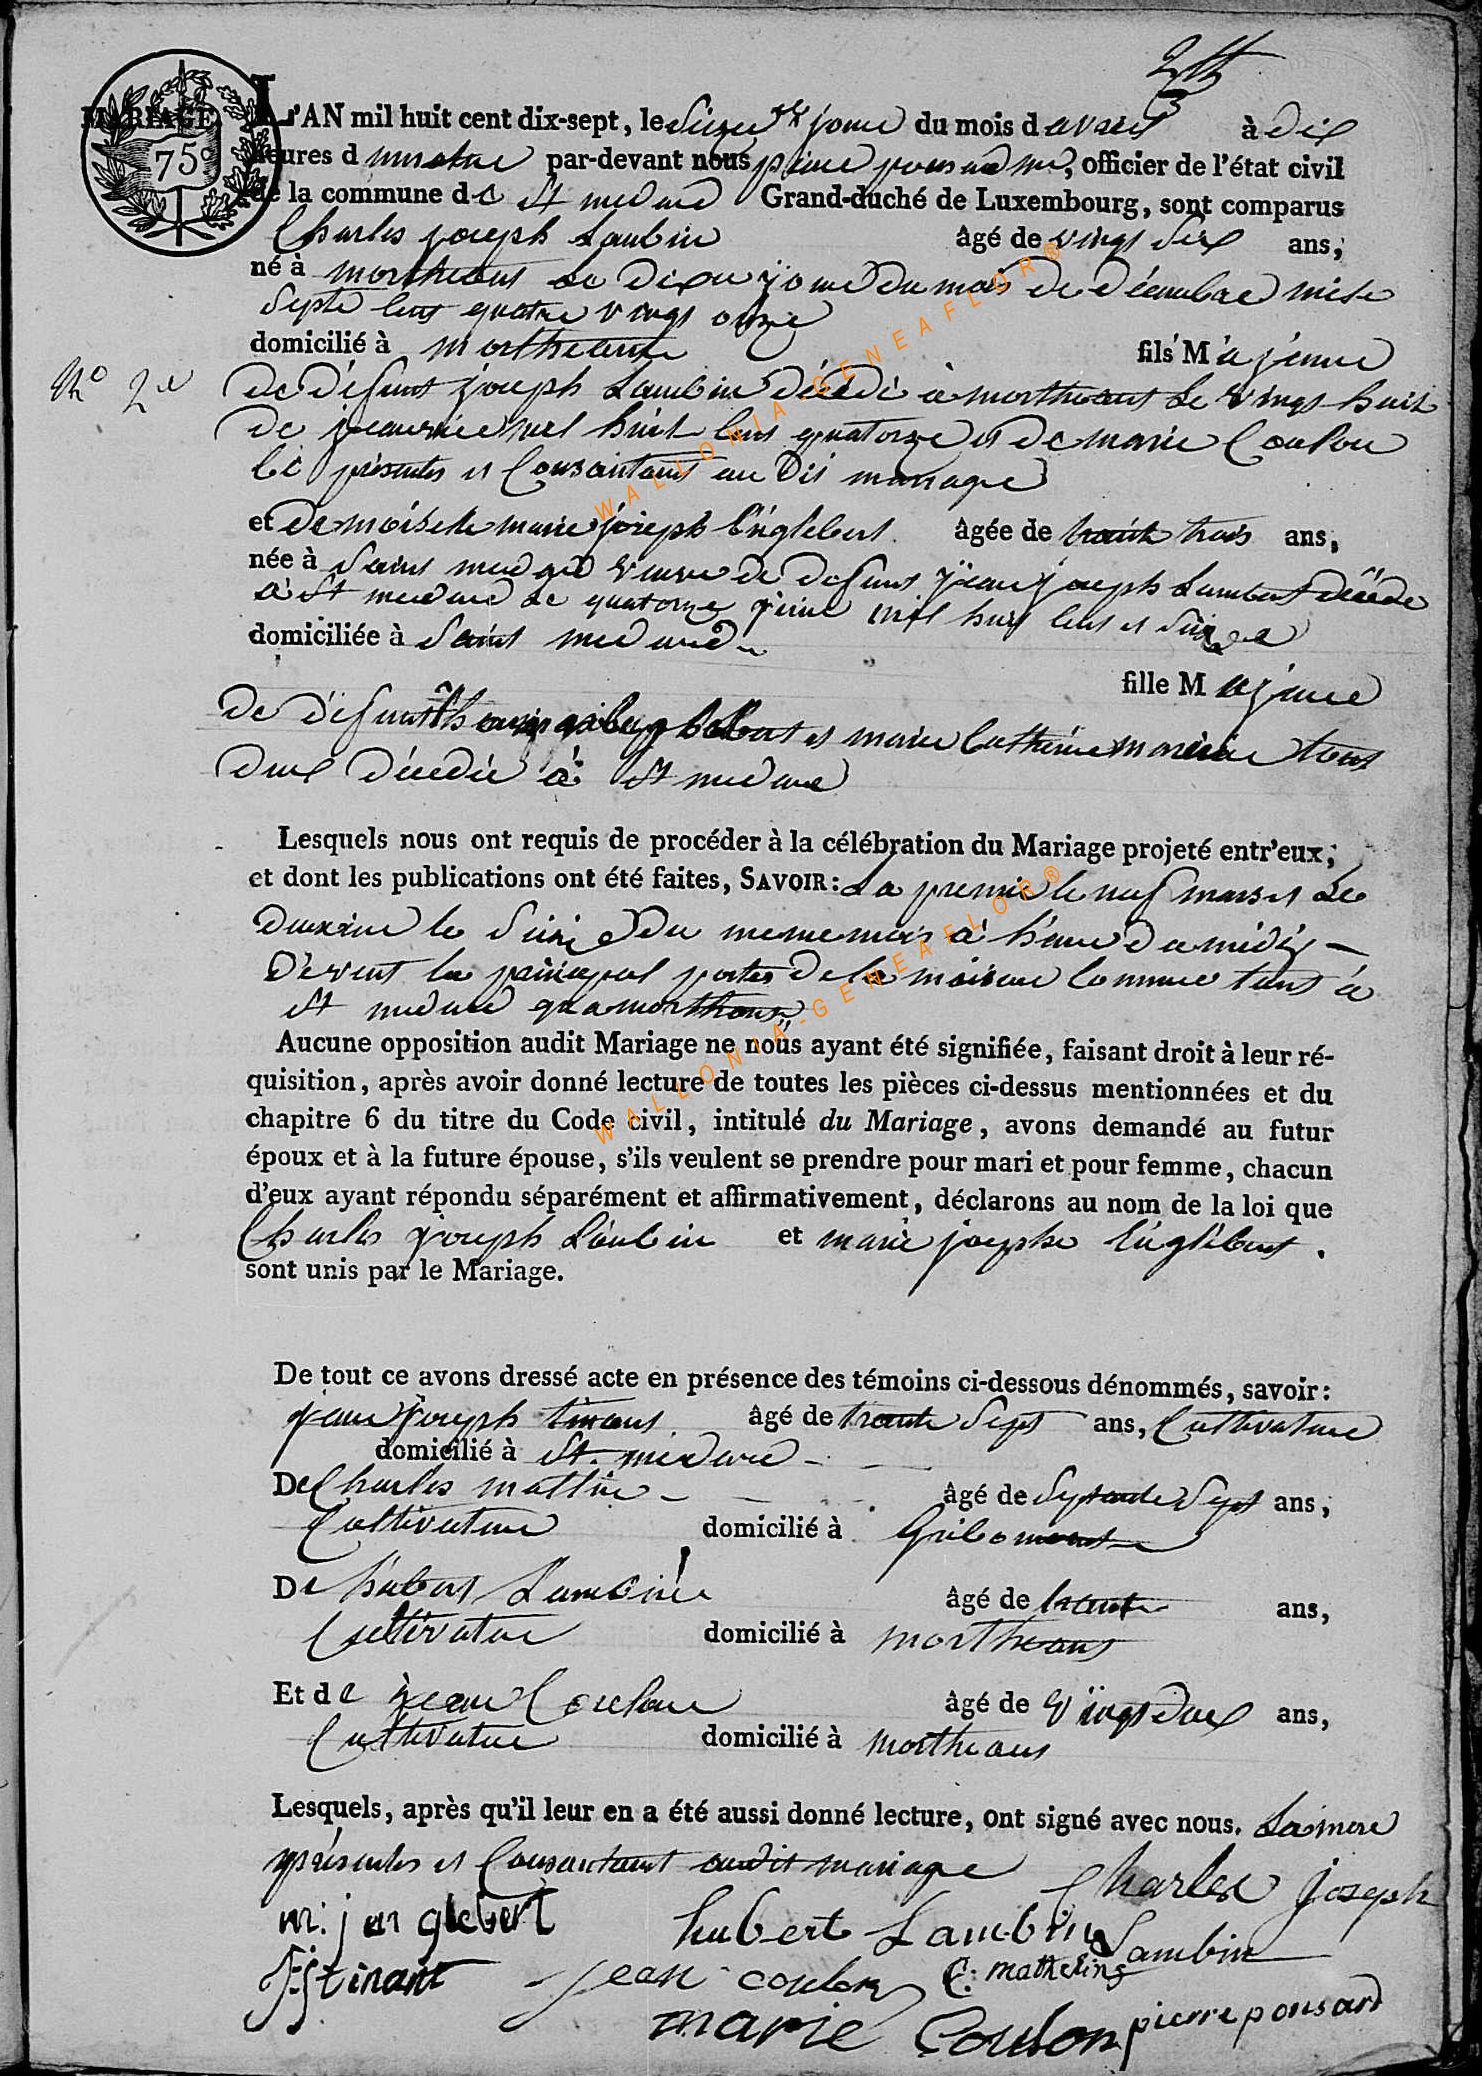 MARIAGE.
75c
L'AN mil huit cent dix-sept, le jour du mois d avril à dix
heures d par-devant nous pierre ponsard, officier de l'état civil
de la commune de St medard Grand-duché de Luxembourg, sont comparus
Charles joseph Lambin âgé de vingt six ans,
né à mortheans Le du mois de Décembre mile
Septe Cens quatre vings onze
domicilié à mortheans fils Majeure
No 2e
de défunt joseph Lambin décédé à mortheans Le vings huit
De mil huit Cens quatorze et De marie Coulon
présentes et Consentante au Dit mariage
et Demoiselle marie joseph Englebert âgée de trente trois ans,
née à Saint medard veuve de defunt jean joseph Lambert décédé
à St medard Le quatorze mil huit Cens et
domiciliée à Saint medard
fille Majeure
de défunt Englebert et marie Catherine tous
Deux Décédée à St medard
Lesquels nous ont requis de procéder à la célébration du Mariage projeté entr'eux;
et dont les publications ont été faites, SAVOIR: La premier le neuf mars et Le
Deuxieme le Du meme mois à heure De midÿ
Devent la principal portes De la maison Commune tant à
St medard qua mortheans
Aucune opposition audit Mariage ne nous ayant été signifiée, faisant droit à leur ré-
quisition, après avoir donné lecture de toutes les pièces ci-dessus mentionnées et du
chapitre 6 du titre du Code civil, intitulé du Mariage, avons demandé au futur
époux et à la future épouse, s'ils veulent se prendre pour mari et pour femme, chacun
d'eux ayant répondu séparément et affirmativement, déclarons au nom de la loi que
Charles joseph Lambin et marie josephe Englebert.
sont unis par le Mariage.
De tout ce avons dressé acte en présence des témoins ci-dessous dénommés, savoir:
jean joseph tinant âgé de trente Sept ans, Cultivateur
domicilié à St. medard
De Charles âgé de Septente Sept ans,
Cultivateur domicilié à Gribomont
De hubert Lambin âgé de trente ans,
Cultivateur domicilié à mortheans
Et de jean Coulon âgé de vingt Deux ans,
Cultivateur domicilié à mortheans
Lesquels, après qu'il leur en a été aussi donné lecture, ont signé avec nous. La mere
présentes et Consentant audit mariage Charles joseph
m: j englebert hubert Lambin Lambin
tinant jean coulon C: mathelin
marie Coulon pierre ponsard
WALLONIA-GENEAFLOR®
WALLONIA-GENEAFLOR®